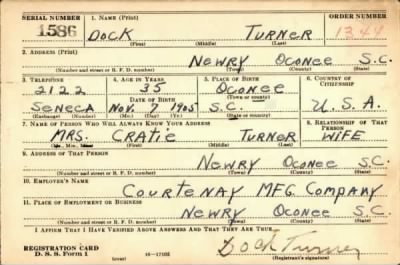 SERIAL NUMBER 1. NAME (Print) ORDER NUMBER
1586 DOCK TURNER 1344
(First) (Middle) (Last)
2. ADDRESS (Print)
NEWRY OCONEE S.C.
(Number and street or R. F. D. number) (Town) (County) (State)
3. TELEPHONE 4. AGE IN YEARS 5. PLACE OF BIRTH 6. COUNTRY OF CITIZENSHIP
2122 35 OCONEE
(Town or county)
DATE OF BIRTH
SENECA NOV. 7 1905 S.C. U.S.A.
(Exchange) (Number) (Mo.) (Day) (Yr.) (State or country)
7. NAME OF PERSON WHO WILL ALWAYS KNOW YOUR ADDRESS 8. RELATIONSHIP OF THAT PERSON
MRS. CRATIE TURNER WIFE
(Mr., Mrs., Miss) (First) (Middle) (Last)
9. ADDRESS OF THAT PERSON
NEWRY OCONEE S.C.
(Number and street or R. F. D. number) (Town) (County) (State)
10. EMPLOYER'S NAME
COURTENAY MFG. COMPANY
11. PLACE OF EMPLOYMENT OR BUSINESS
NEWRY OCONEE S.C.
(Number and street or R. F. D. number) (Town) (County) (State)
I AFFIRM THAT I HAVE VERIFIED ABOVE ANSWERS AND THAT THEY ARE TRUE.
REGISTRATION CARD Dock Turner
D. S. S. Form 1 (over) 16—17105 (Registrant's signature)